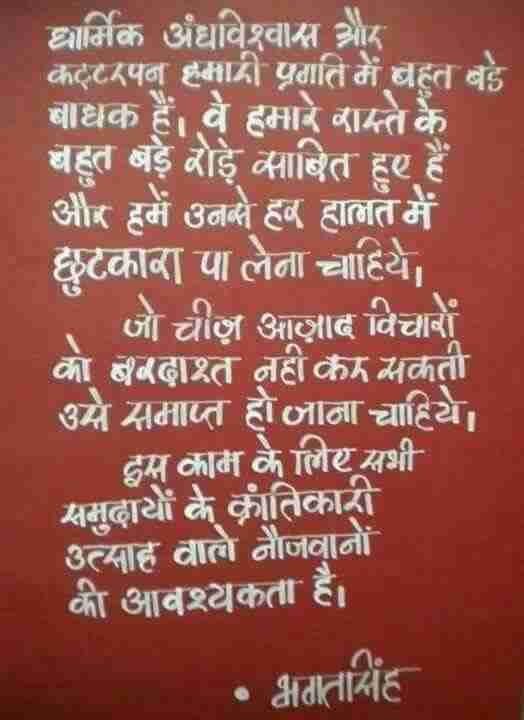 धार्मिक अंधविश्वास और
कट्टरपन हमारी प्रगति में बहुत बडे
बाधक हैं। वे हमारे रास्ते के
बहुत बड़े रोड़े साबित हुए हैं
और हमें उनसे हर हालत में
छुटकारा पा लेना चाहिये।
जो चीज़ आज़ाद विचारों
को बरदाश्त नही कर सकती
उसे समाप्त हो जाना चाहिये।
इस काम के लिए सभी
समुदायों के क्रांतिकारी
उत्साह वाले नौजवानों
की आवश्यकता है।
• भगतसिंह